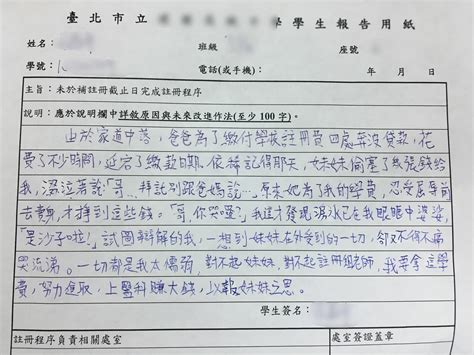 臺北市立 學學生報告用紙
姓名： 班級 座號
學號： 電話(或手機)： 年 月 日
主旨：未於補註冊截止日完成註冊程序
說明：應於說明欄中詳敘原因與未來改進作法(至少 100 字)。
由於家道中落，爸爸為了繳付學校註冊費四處奔波貸款，花
費了不少時間，延宕了繳款日期。依稀記得那天，妹妹偷塞了幾張錢給
我，哽泣著說「哥…拜託別跟爸媽說…」原來她為了我的學費，忍受屈辱前
去賣身，才掙到這些錢。「哥，你哭啦？」我這才發現淚水已在我眼眶中婆娑，
「是沙子啦！」試圖辯解的我，一想到妹妹在外受到的一切，卻又不得不痛
哭流涕。一切都是我太懦弱，對不起妹妹，對不起註冊組老師，我要拿這學
費，努力進取，上醫科賺大錢，以報妹妹之恩。
學生簽名：
註冊程序負責相關處室 處室簽證蓋章